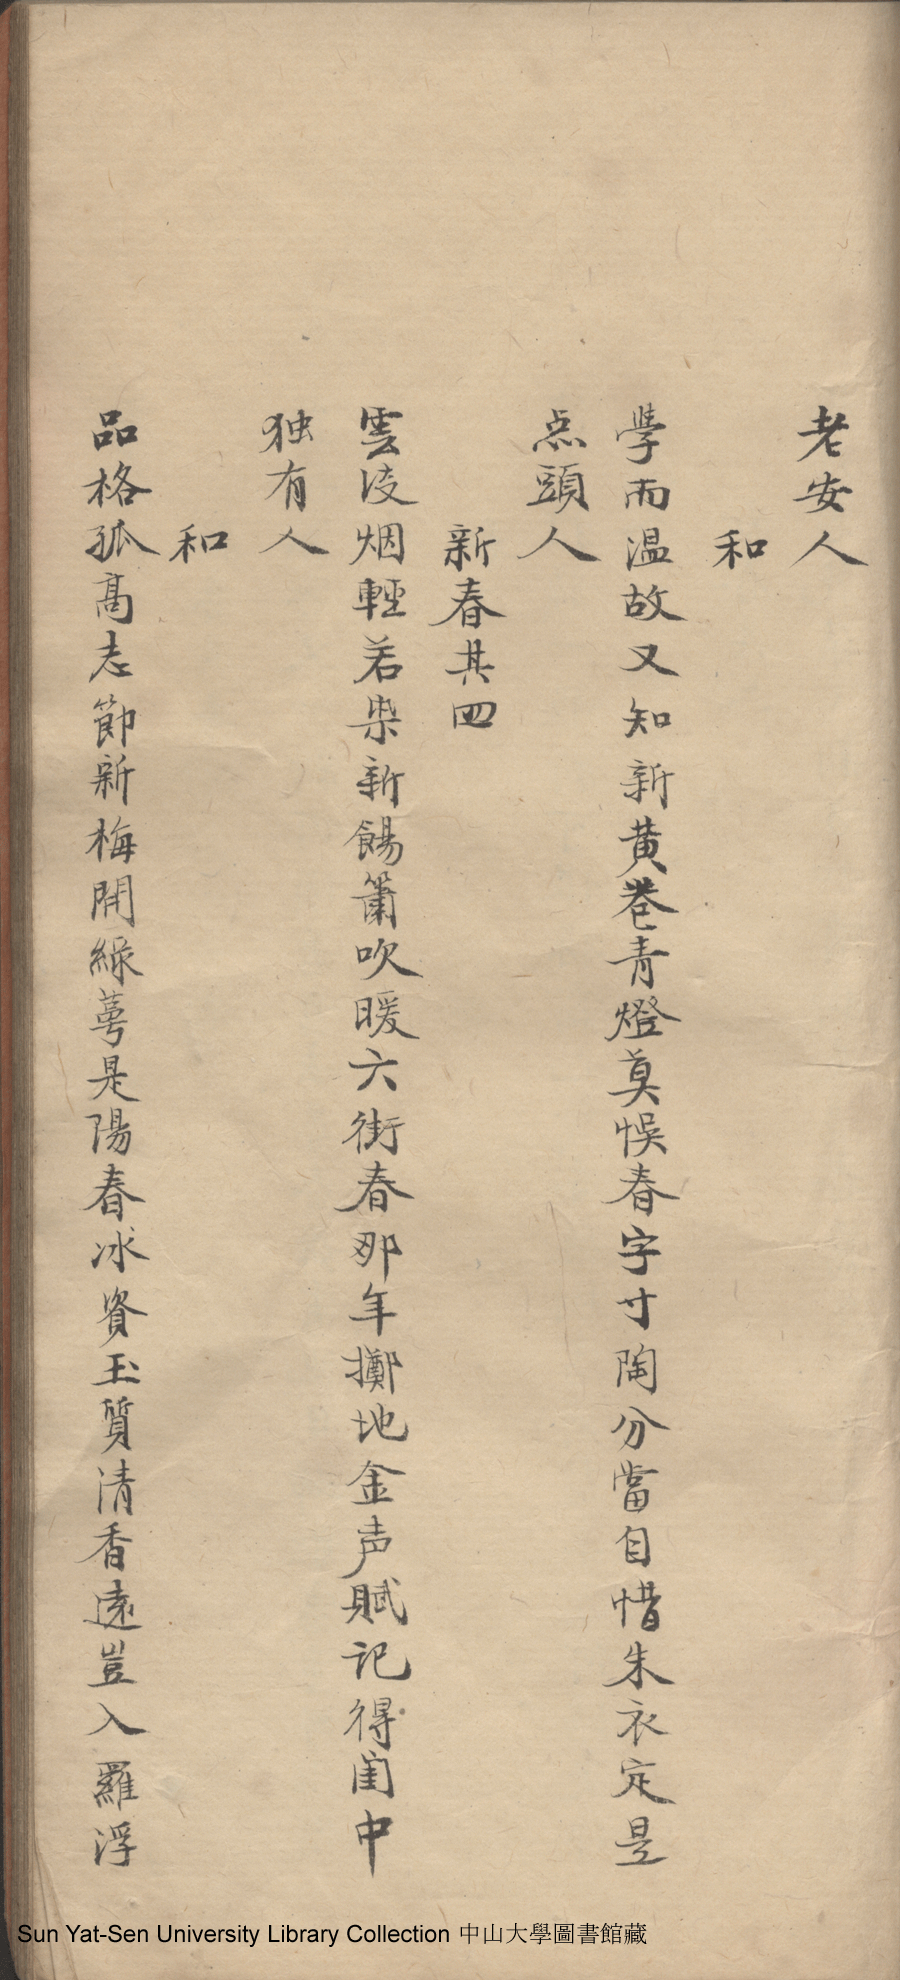 老安人
和
學而温故又知新黄卷青燈莫悞春字寸陶分當自惜朱衣定是
点頭人
新春其四
雲淩烟輕若染新餳簫吹暖六街春那年擲地金声賦记得闺中
独有人
和
品格孤高志節新梅開綠萼是陽春冰資玉質清香遠豈入羅浮
Sun Yat-Sen University Library Collection 中山大學圖書館藏